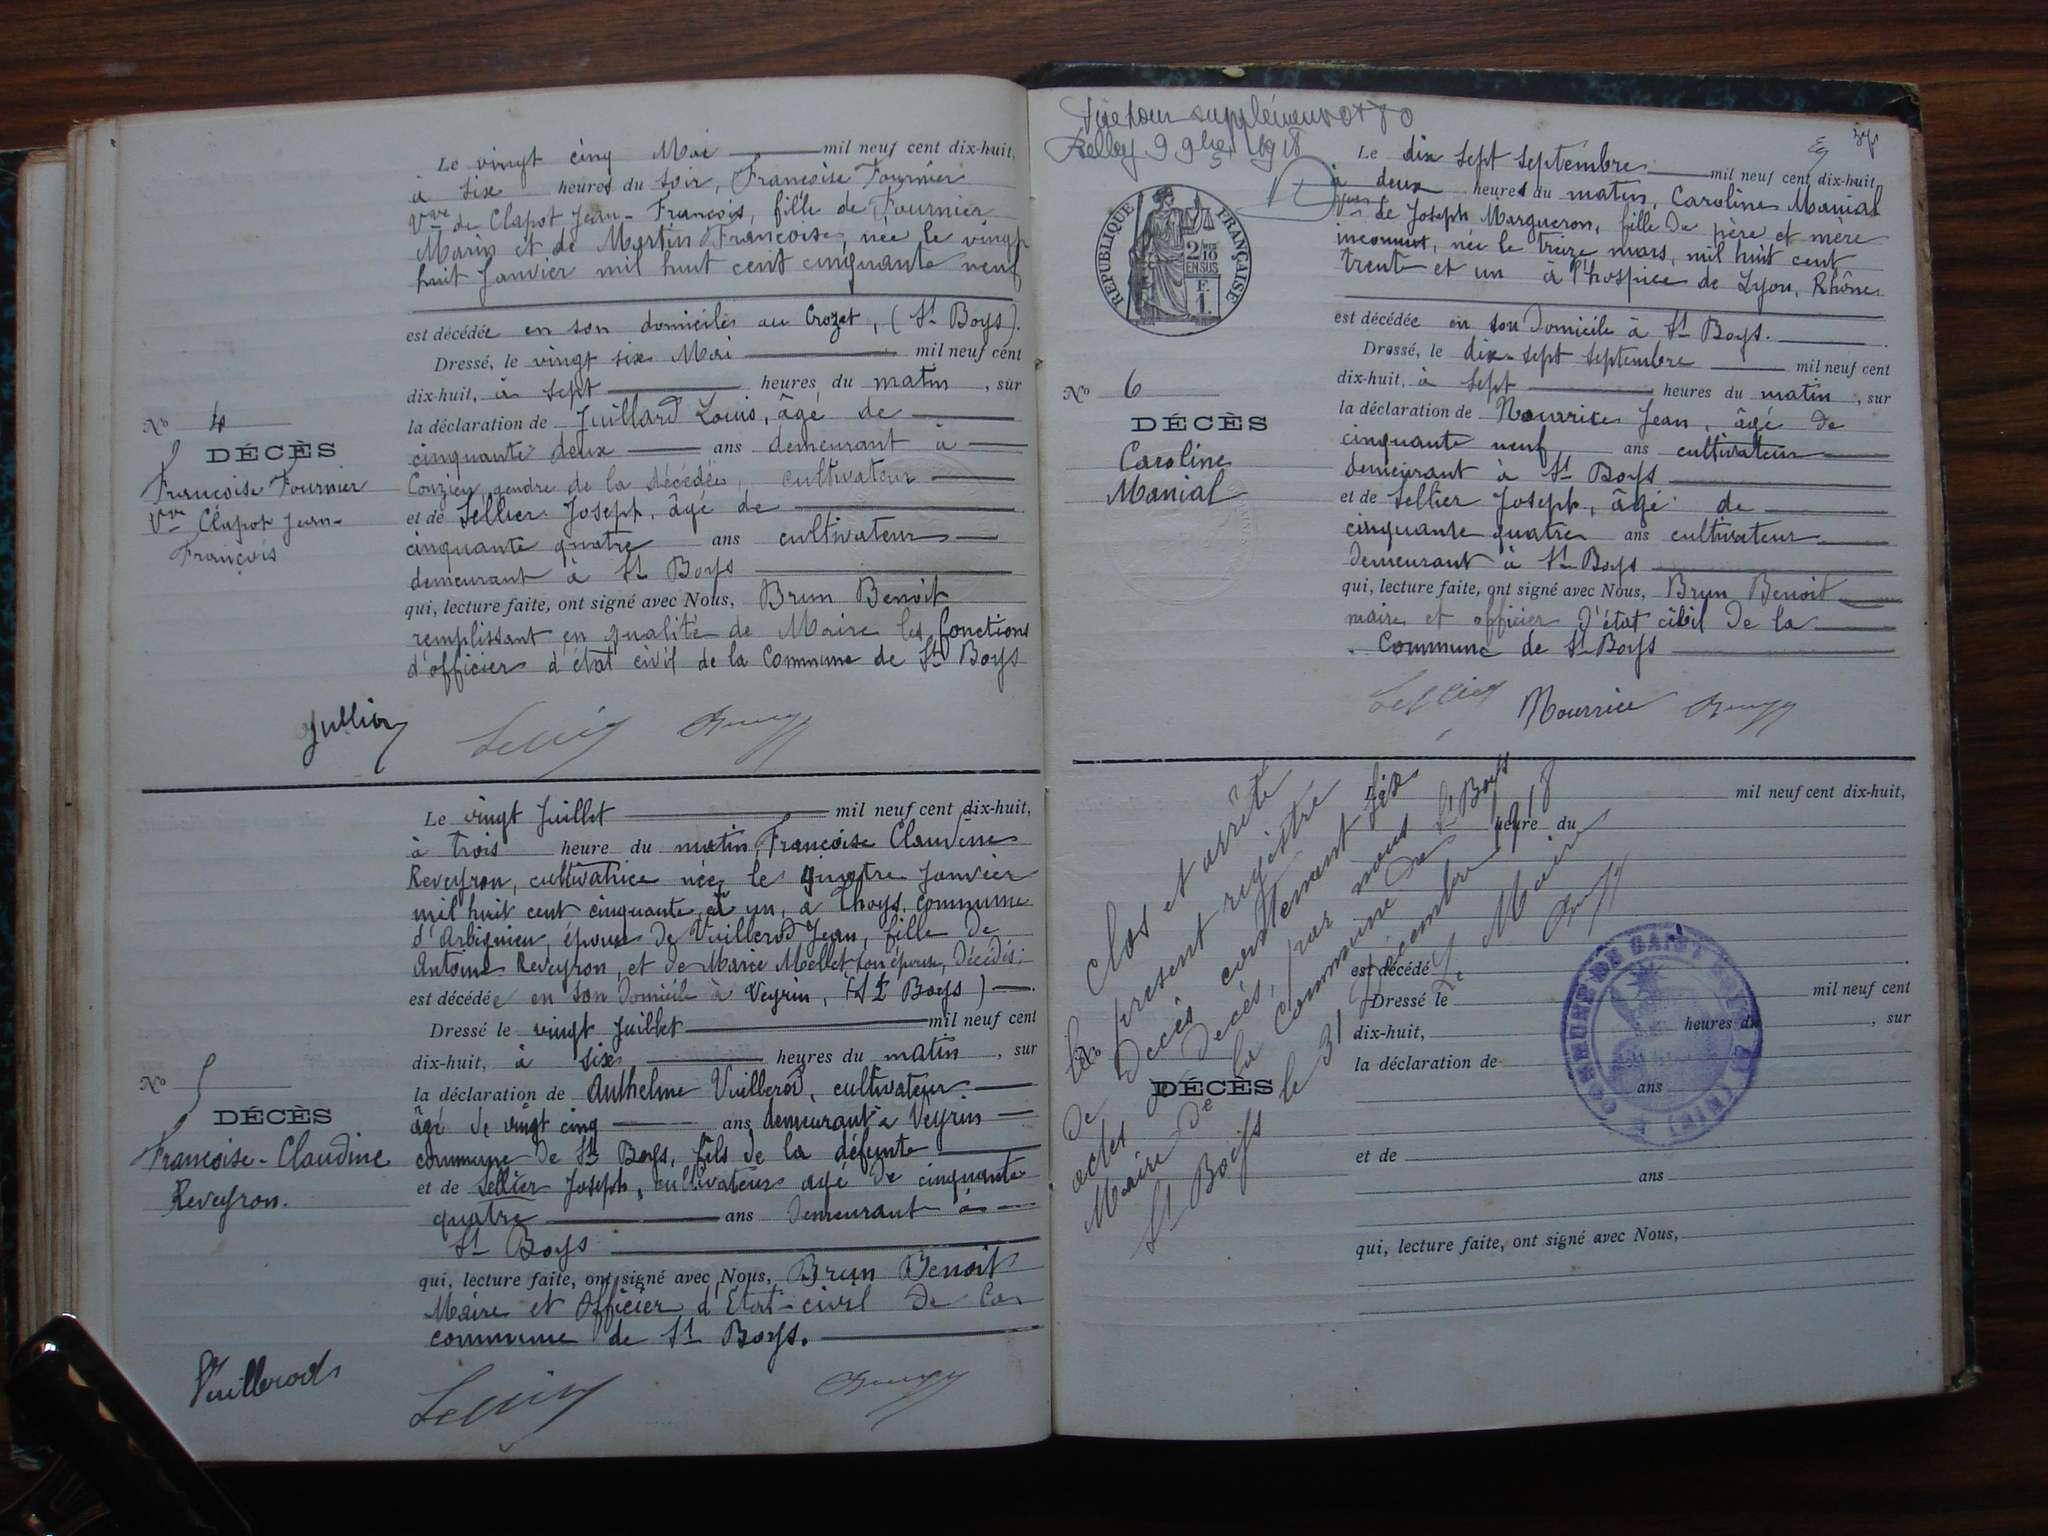 Le vingt cinq Mai mil neuf cent dix-huit,
à six heures du soir, Françoise Fournier
Vve de Clapot Jean-François, fille de Fournier
Marin et de Martin Françoise, née le vingt
huit Janvier mil huit cent cinquante neuf
est décédée en son domicile au Crozet, (St Boys).
Dressé, le vingt six Mai mil neuf cent
dix-huit, à sept heures du matin, sur
la déclaration de Juillard Louis, âgé de
cinquante deux ans demeurant à
Conzieu, gendre de la décédée, cultivateur
et de Sellier Joseph, âgé de
cinquante quatre ans cultivateur
demeurant à St Boys
qui, lecture faite, ont signé avec Nous, Brun Benoit
remplissant en qualité de Maire les fonctions
d'officier d'état civil de la Commune de St Boys
No 4
DÉCÈS
Françoise Fournier
Vve Clapot Jean-
François
Le vingt Juillet mil neuf cent dix-huit,
à trois heure du matin, Françoise Claudine
Reveyron, cultivatrice née le quatre Janvier
mil huit cent cinquante et un, à Thoys, commune
d'Arbignieu, épouse de Vuillerod Jean, fille de
Antoine Reveyron, et de Marie Mellet son épouse, décédés,
est décédée en son domicile à Veyrin, (St Boys).
Dressé le vingt Juillet mil neuf cent
dix-huit, à six heures du matin, sur
la déclaration de Anthelme Vuillerod, cultivateur
âgé de vingt cinq ans demeurant à Veyrin
commune de St Boys, fils de la défunte
et de Sellier Joseph, cultivateur agé de cinquante
quatre ans demeurant à
St Boys
qui, lecture faite, ont signé avec Nous, Brun Benoit
Maire et Officier d'Etat-civil de la
commune de St Boys.
No 5
DÉCÈS
Françoise-Claudine
Reveyron.
Vuillerod
supplément 0+70
Belley 9 9bre 1918
37
RÉPUBLIQUE FRANÇAISE
2/10
EN SUS
F.
1.
Le dix sept septembre mil neuf cent dix-huit,
à deux heures du matin, Caroline Manial
Vve de Joseph Margueron, fille de père et mère
inconnus, née le treize mars, mil huit cent
trente et un à l'hospice de Lyon, Rhône
est décédée en son domicile à St Boys.
Dressé, le dix-sept septembre mil neuf cent
dix-huit, à sept heures du matin, sur
la déclaration de Nourrice Jean, âgé de
cinquante neuf ans cultivateur
demeurant à St Boys
et de Sellier Joseph, âgé de
cinquante quatre ans cultivateur
demeurant à St Boys
qui, lecture faite, ont signé avec Nous, Brun Benoit
maire et officier d'état civil de la
Commune de St Boys
No 6
DÉCÈS
Caroline
Manial
Nourrice
Clos et arrêté
le présent registre
de Décès contenant six
actes de décès, par nous
Maire de la commune de St Boys
St Boys le 31 Décembre 1918
Le Maire
Le mil neuf cent dix-huit,
heure du
est décédé
Dressé le mil neuf cent
dix-huit, heures du , sur
la déclaration de
ans
et de
ans
qui, lecture faite, ont signé avec Nous,
No
DÉCÈS
COMMUNE DE SAINT BOYS (AIN)